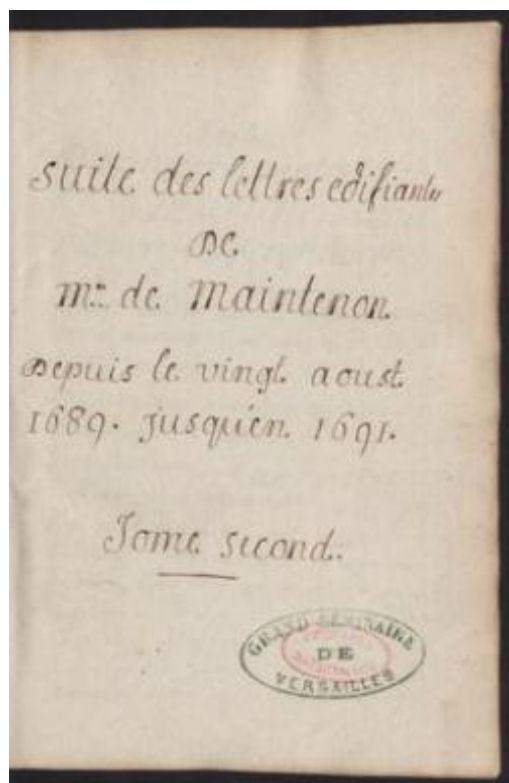 suite des lettres edifiantes
De
mr. de maintenon
Depuis le vingt aoust
1689. jusqu'en 1691.
Tome second.
GRAND SÉMINAIRE
DE
VERSAILLES